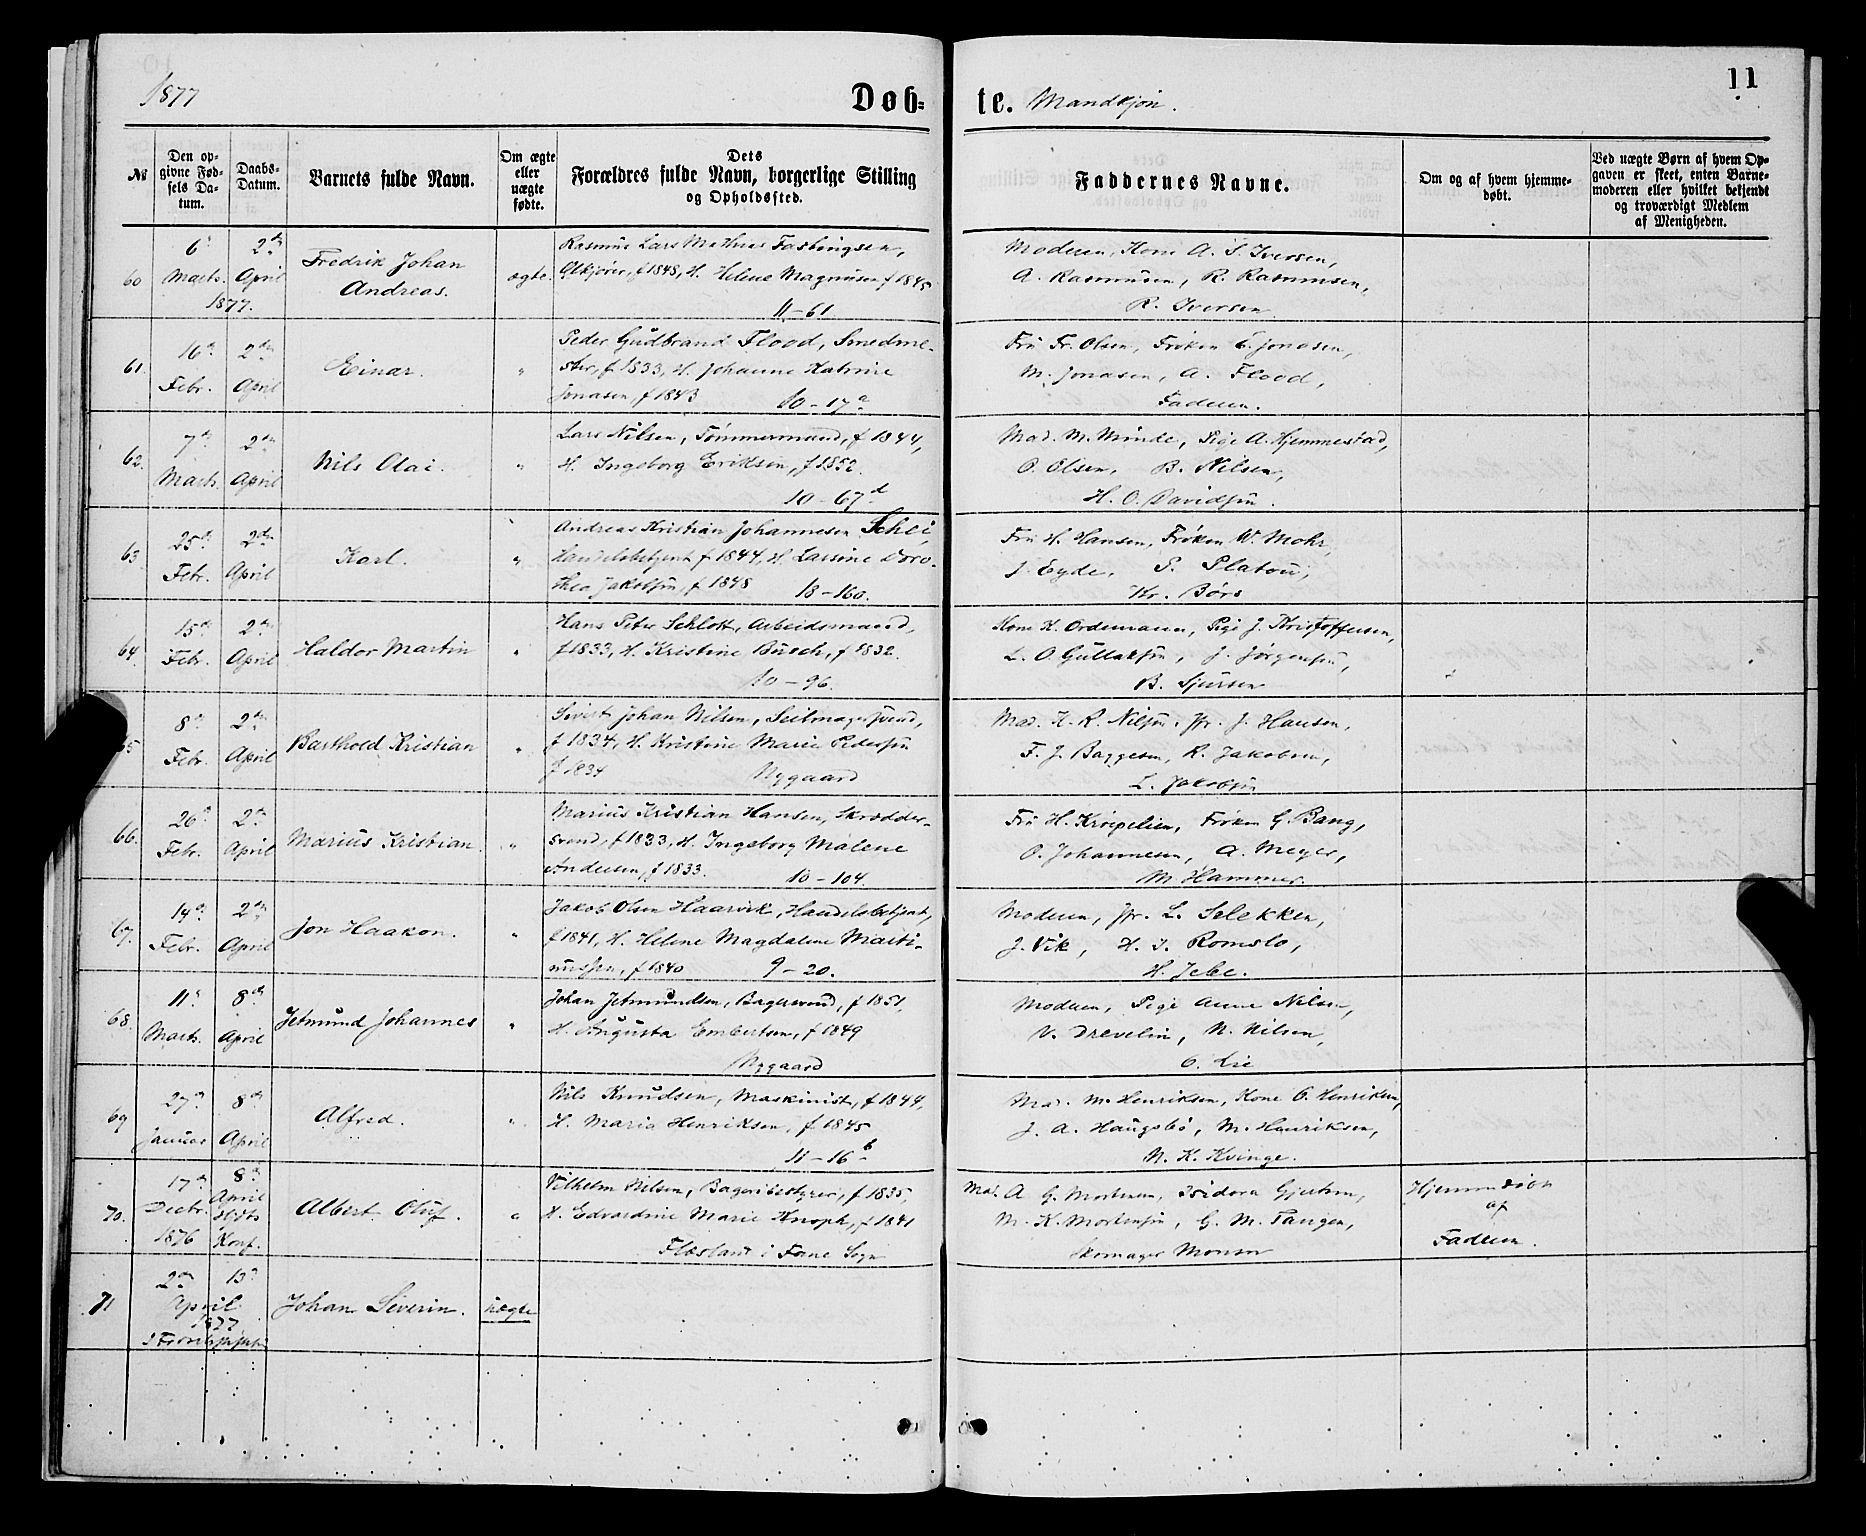 1877 Døb-
te. Mandkjøn. 11
№ Den opgivne Fødsels Datum. Daabs-Datum. Barnets fulde Navn. Om ægte eller uægte fødte. Dets Forældres fulde Navn, borgerlige Stilling og Opholdssted. Faddernes Navne. Om og af hvem hjemmedøbt. Ved uægte Børn af hvem Opgaven er skeet, enten Barnemoderen eller hvilket bekjendt og troværdigt Medlem af Menigheden.
60 6 Marts. 2den April 1877. Fredrik Johan Andreas. ægte.
Rasmus Lars Mathias Fastingsen,
f 1848, H. Helene Magnusen f 1845
11-61
Moderen, Kone A. S. Iversen,
A. Rasmusen, R. Rasmusen,
R. Iversen
61. 16 Febr. 2den April Einar. "
Peder Gudbrand Flood, Smedme-
ster, f 1833, H. Johanne Katrine
Jonasen, f 1843 10-17a
Fru Fr. Olsen, Frøken E. Jonasen,
M. Jonasen, A. Flood,
Faderen.
62. 7de Marts. 2den April Nils Olai. "
Lars Nilsen, Tømmermand, f 1844,
H. Ingeborg Eriksen, f 1852.
10-67d
Mad. M. Minde, Pige A. Hjemmestad,
O. Olsen, B. Nilsen,
H. O. Davidsen.
63. 25de Febr. 2den April Karl. "
Andreas Kristian Johannesen Schei,
Handelsbetjent f 1844, H. Larsine Doro-
thea Jakobsen, f 1848 18-160.
Fru H. Hansen, Frøken W. Mohr,
J. Eyde, S. Platou,
Kr. Børs
64. 15de Febr. 2den April Haldor Martin "
Hans Peter Schlott, Arbeidsmand,
f 1833, H. Kristine Busch, f 1832.
10-96.
Kone K. Ordemann, Pige J. Kristoffersen,
L. O. Gullaksen, J. Jørgensen,
B. Sjursen
65 8de Febr. 2den April Barthold Kristian "
Sivert Johan Nilsen, Seilmagersvend,
f 1834, H. Kristine Marie Pedersen
f 1834 Nygaard
Mad. K. R. Nilsen, Jfr. J. Hansen,
F. J. Baggesen, R. Jakobsen,
L. Jakobsen
66. 26 Febr. 2den April Marius Kristian. "
Marius Kristian Hansen, Skrædder-
svend, f 1833, H. Ingeborg Malene
Andersen, f 1833. 10-104.
Fru H. Krøpelien, Frøken G. Bang,
O. Johannesen, A. Meyer,
M. Hammer.
67. 14de Febr. 2den April Jon Haakon. "
Jakob Olsen Haarvik, Handelsbetjent,
f 1841, H. Helene Magdalene Marti-
nussen, f 1840 9-20.
Moderen, Jfr. L. Selekken,
J. Vik, H. J. Romslo,
H. Jebe.
68. 11 Marts. 8de April Jetmund Johannes "
Johan Jetmundsen, Bagersvend, f 1851,
H. Augusta Embertsen, f 1849
Nygaard
Moderen, Pige Anne Nilsen,
V. Drevelin, N. Nilsen,
O. Lie
69 27de Januar 8de April Alfred. "
Nils Knudsen, Maskinist, f 1844,
H. Maria Henriksen, f 1845
11-16b
Mad. M. Henriksen, Kone O. Henriksen,
J. A. Haugsbø, M. Henriksen,
N. K. Kvinge.
70. 17de Decbr. 1876 8de April Konf. Albert Oluf. "
Vilhelm Nilsen, Bageribestyrer, f 1835,
H. Edvardine Marie Knoph, f 1841
Flesland i Fane Sogn
Mad. A G. Mortensen, Isidora Gjertsen,
M. K. Mortensen, G. M. Tangen,
Skomager Monsen
Hjemmedøbt
af
Faderen.
71 2den 13de April 1877 Johan Severin. uægte